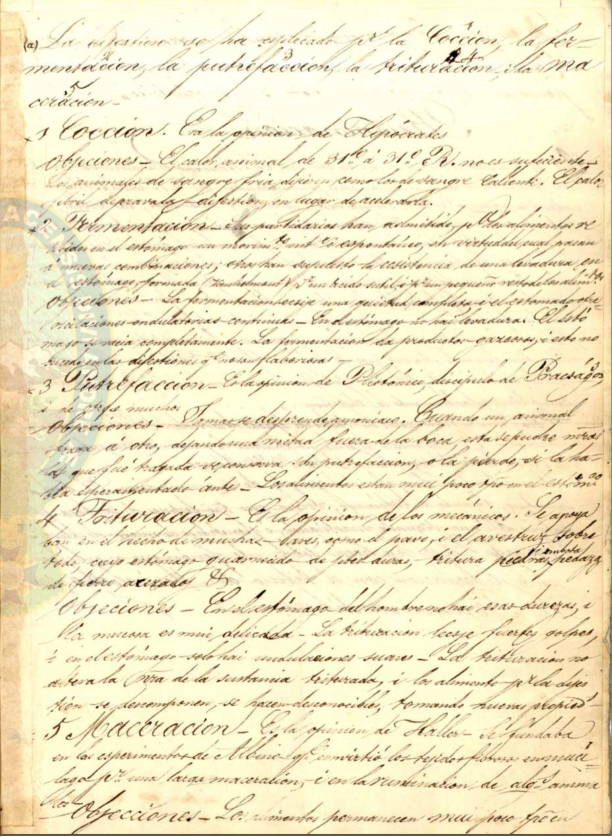 (a) La digestion se ha esplicado pr. la Coccion, la fer-
mentacion, la putrefaccion, la trituracion i la ma
ceracion -
1 Coccion. Era la opinion de Hipócrates
Objeciones - El calor animal de 31° á 31° R. no es suficiente
Los animales de sangre fria dijieren como los de sangre caliente. El calor
febril deprava la digestion, en lugar de acelerarla.
2 Fermentacion - Sus partidarios han admitido, pr. los alimentos re
ciben en el estómago un movim.to espontaneo, en virtud del cual pasan
á nuevas combinaciones; otros han supuesto la existencia de una levadura, en
el estómago, formada pr. un acido sutil i pr. un pequeño resto de los alim.tos
Objeciones - La fermentacion exije una quietud completa i el estomago
oscilaciones ondulatorias continuas - En el estómago no hai levadura. El estó
mago se vacia completamente. La fermentacion da productos gaseosos, i esto no
sucede en las digestiones qe. no son laboriosas -
3 Putrefaccion - Es la opinion de Plistónico, discipulo de Praxágoras
i de otros muchos
Objeciones - Jamas se desprende amoniaco. Cuando un animal
traga á otro, dejando una mitad fuera de la boca, esta se pudre mtras
la que fué tragada se conserva sin putrefaccion, o la pierde, si la ha
bia esperimentado ántes - Los alimentos estan mui poco tpo. en el estomago
4 Trituracion - Es la opinion de los mecánicos. Se apoya
ban en el hecho de muchas aves, como el pavo, i el avestruz sobre
todo, cuyo estómago guarnecido de piezas duras, tritura piedras, pedazos
de fierro, acerados &
Objeciones - En el estómago del hombre no hai esas durezas, i
la mucosa es mui delicada - La trituracion exije fuertes golpes,
i en el estómago solo hai undulaciones suaves - La trituracion no
altera la de la sustancia triturada, i los alimentos pr. la dijes
tion se descomponen, se hacen desconocidos, tomando nuevas propied.s
5 Maceracion - Es la opinion de Haller. Se fundaba
en los esperimentos de Albino qe. convirtió los tejidos fibrosos en muci
lago pr. una larga maceracion, i en la rumiacion de algs. anima
les
Objecciones - Los alimentos permanecen mui poco tpo. en